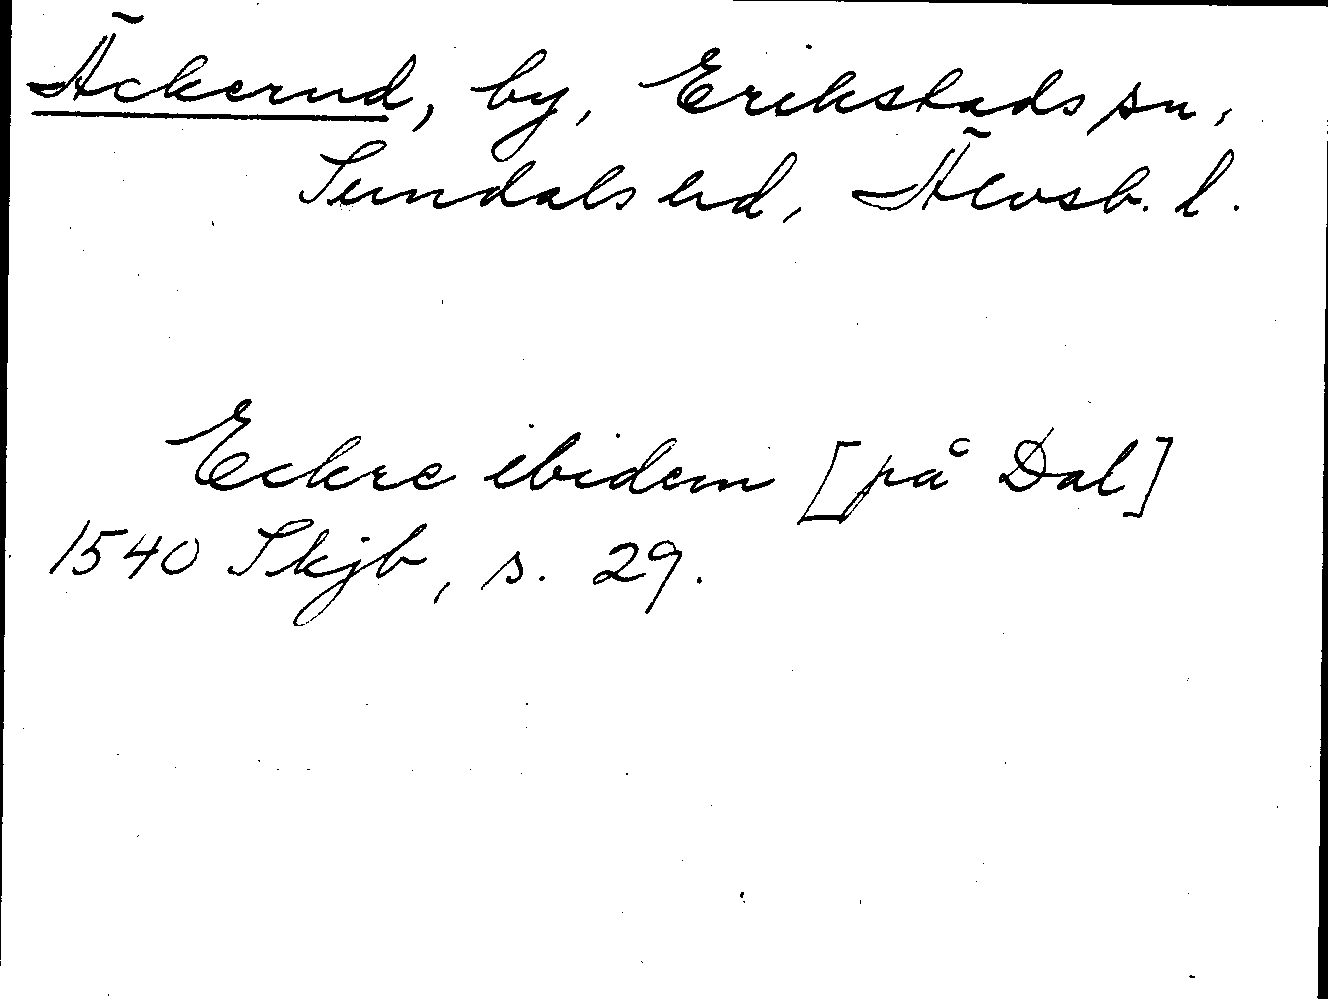 Äckerud, by, Erikstads sn,
Sundals hd, Älvsb. l.
Eckre ibidem [på Dal]
1540 Skjb, s. 29.